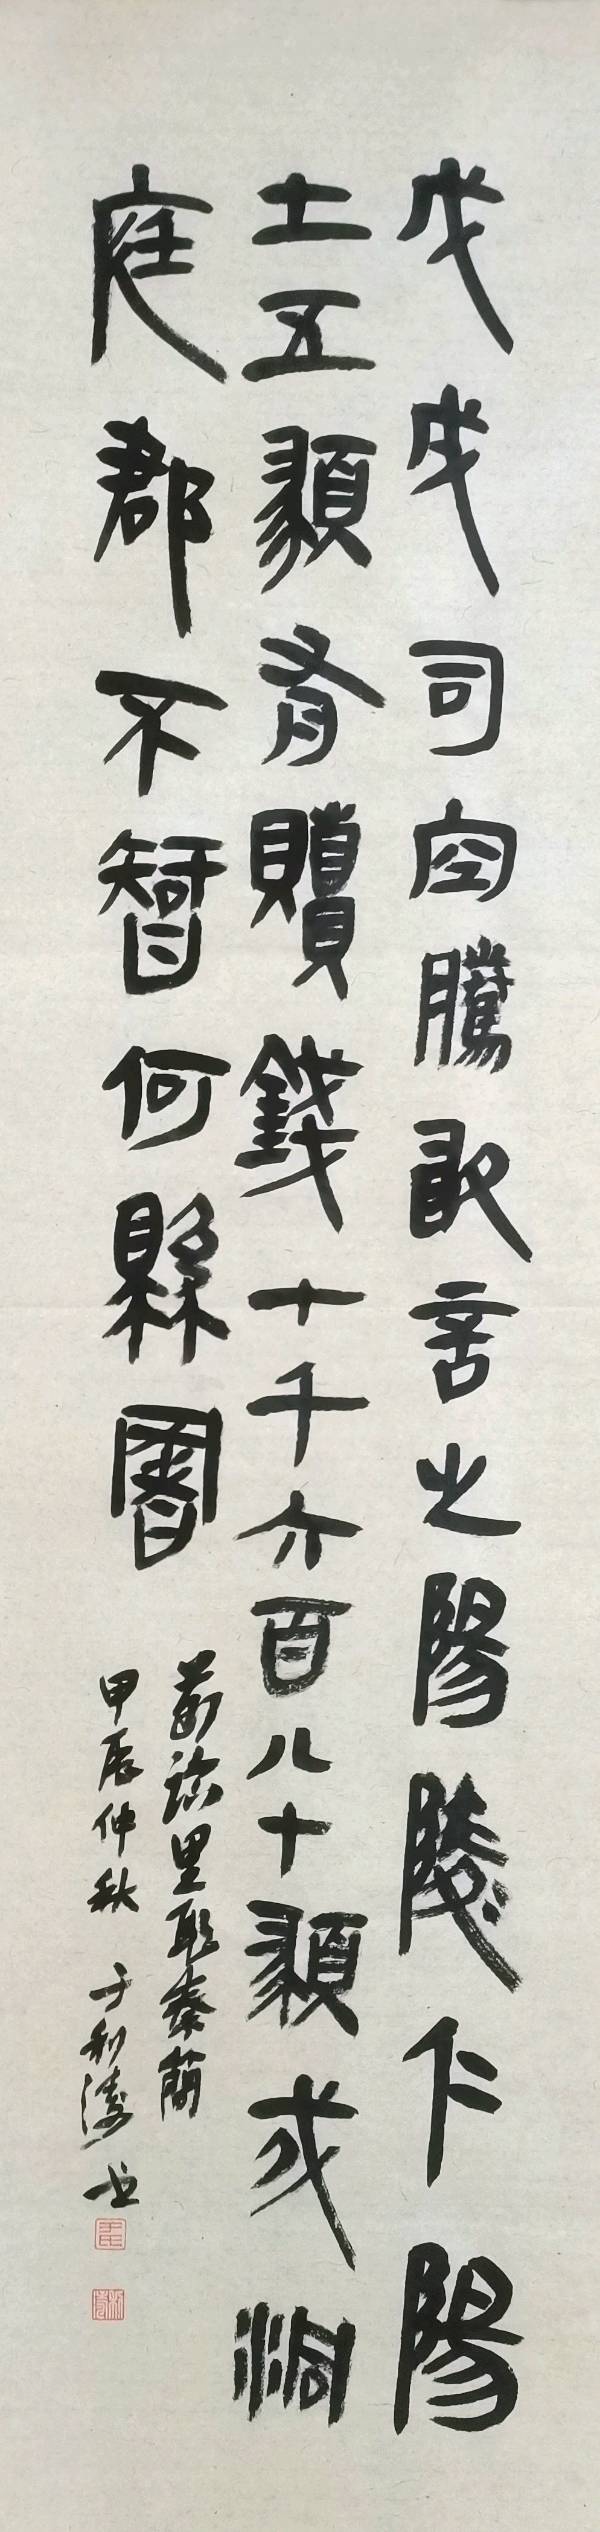 戊戌司空騰敢言之陽陵仁陽
士五顤有贖錢七千六百八十顤戍洞
庭郡不智何縣署
節臨里耶秦簡
甲辰仲秋 于利濤书